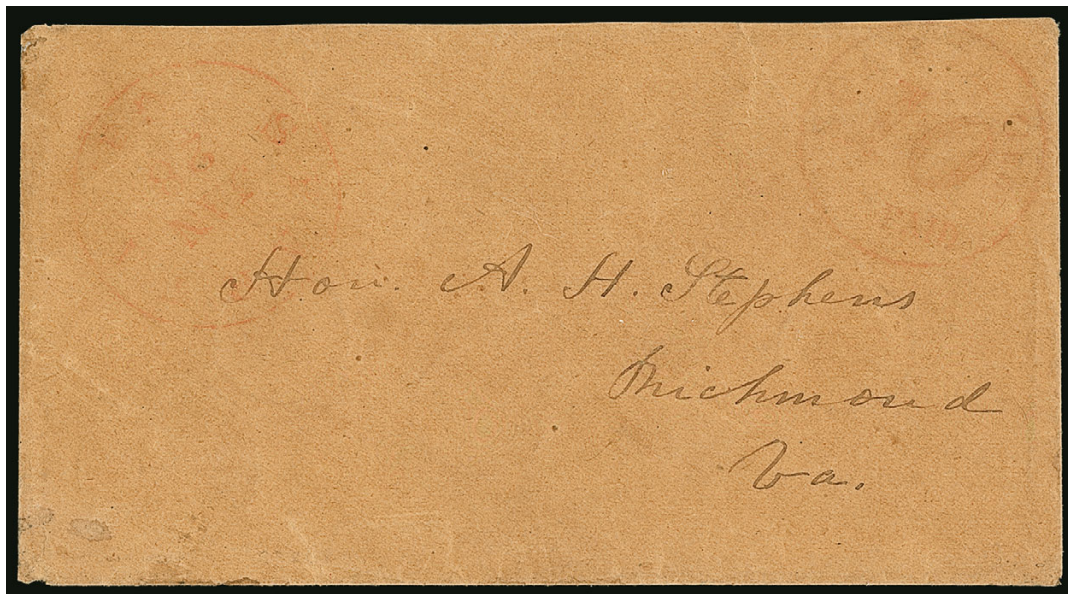 PAID
Hon. A. H. Stephens
Richmond
Va.